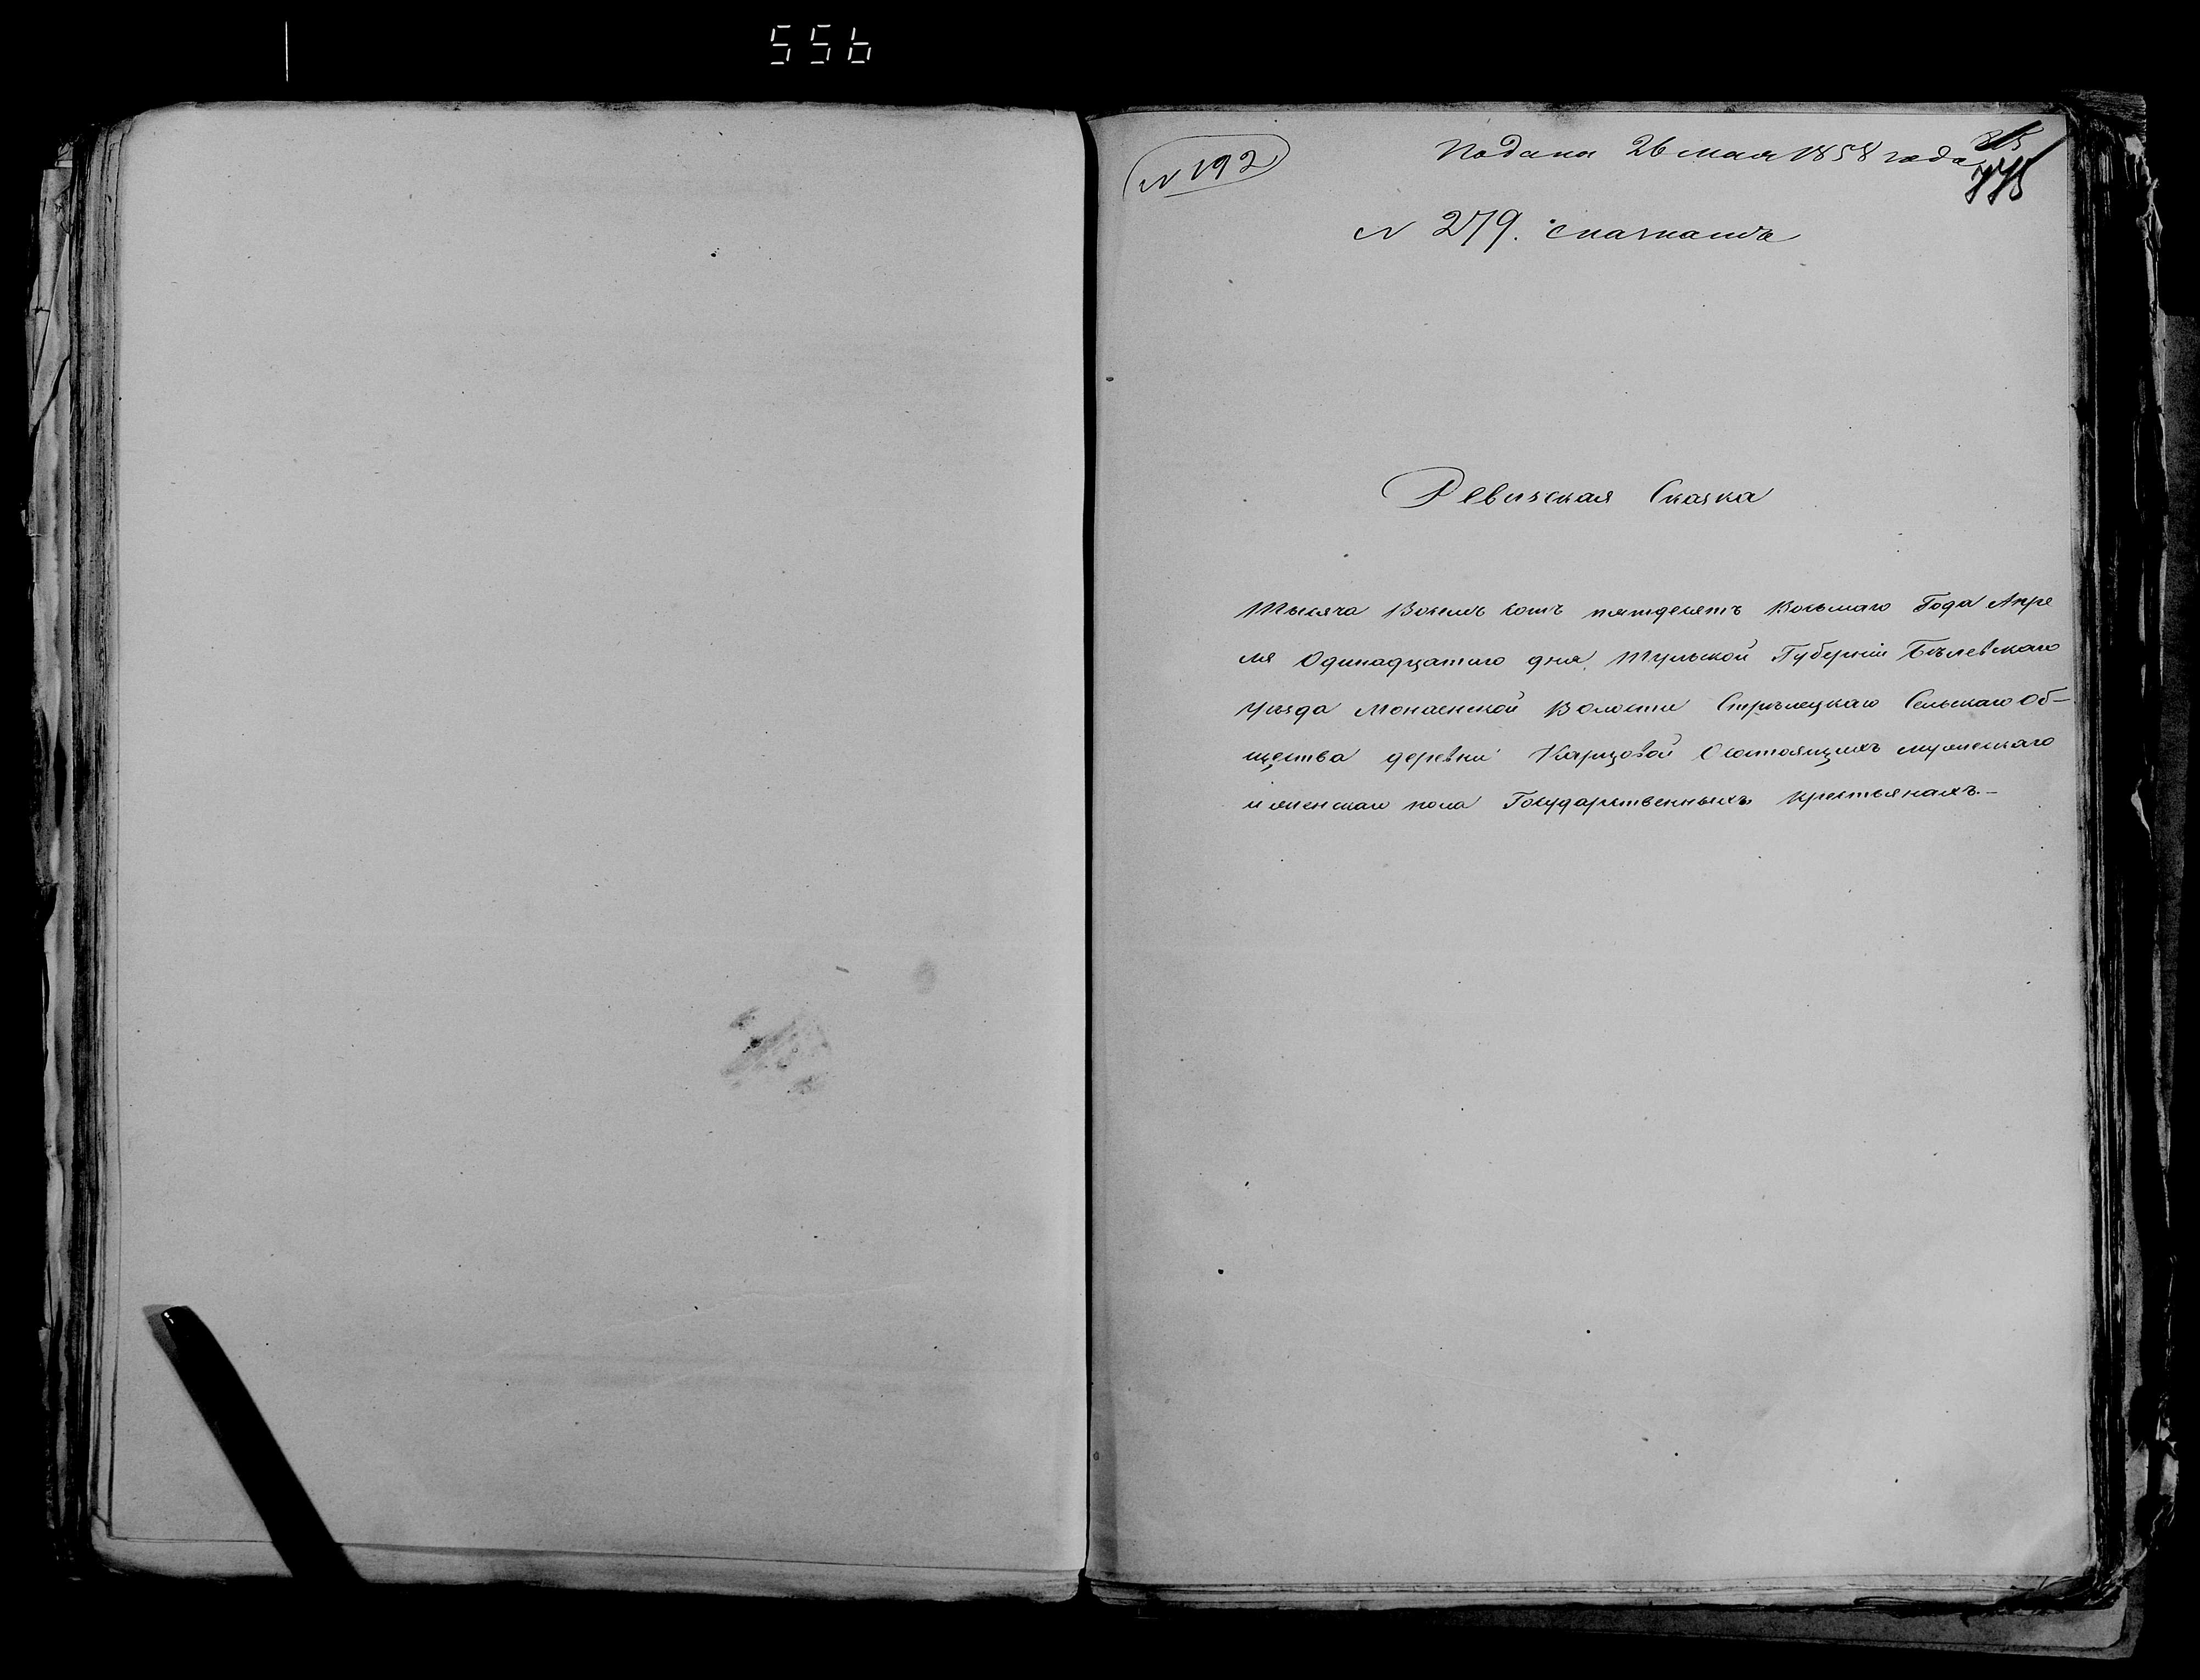 556
N 192
Подана 26 мая 1858 года
N 279.
Ревизская Сказка
Тысяча Восемь сотъ пятдесятъ Восьмаго Года Апре
ля Одинадцатаго дня, Тульской Губерніи Бѣлевскаго
Уѣзда Монаенской Волости Стрѣлецкаго Сельскаго Об-
щества деревни Карцовой О состоящихъ мужескаго
и женскаго пола Государственныхъ крестьянахъ.-